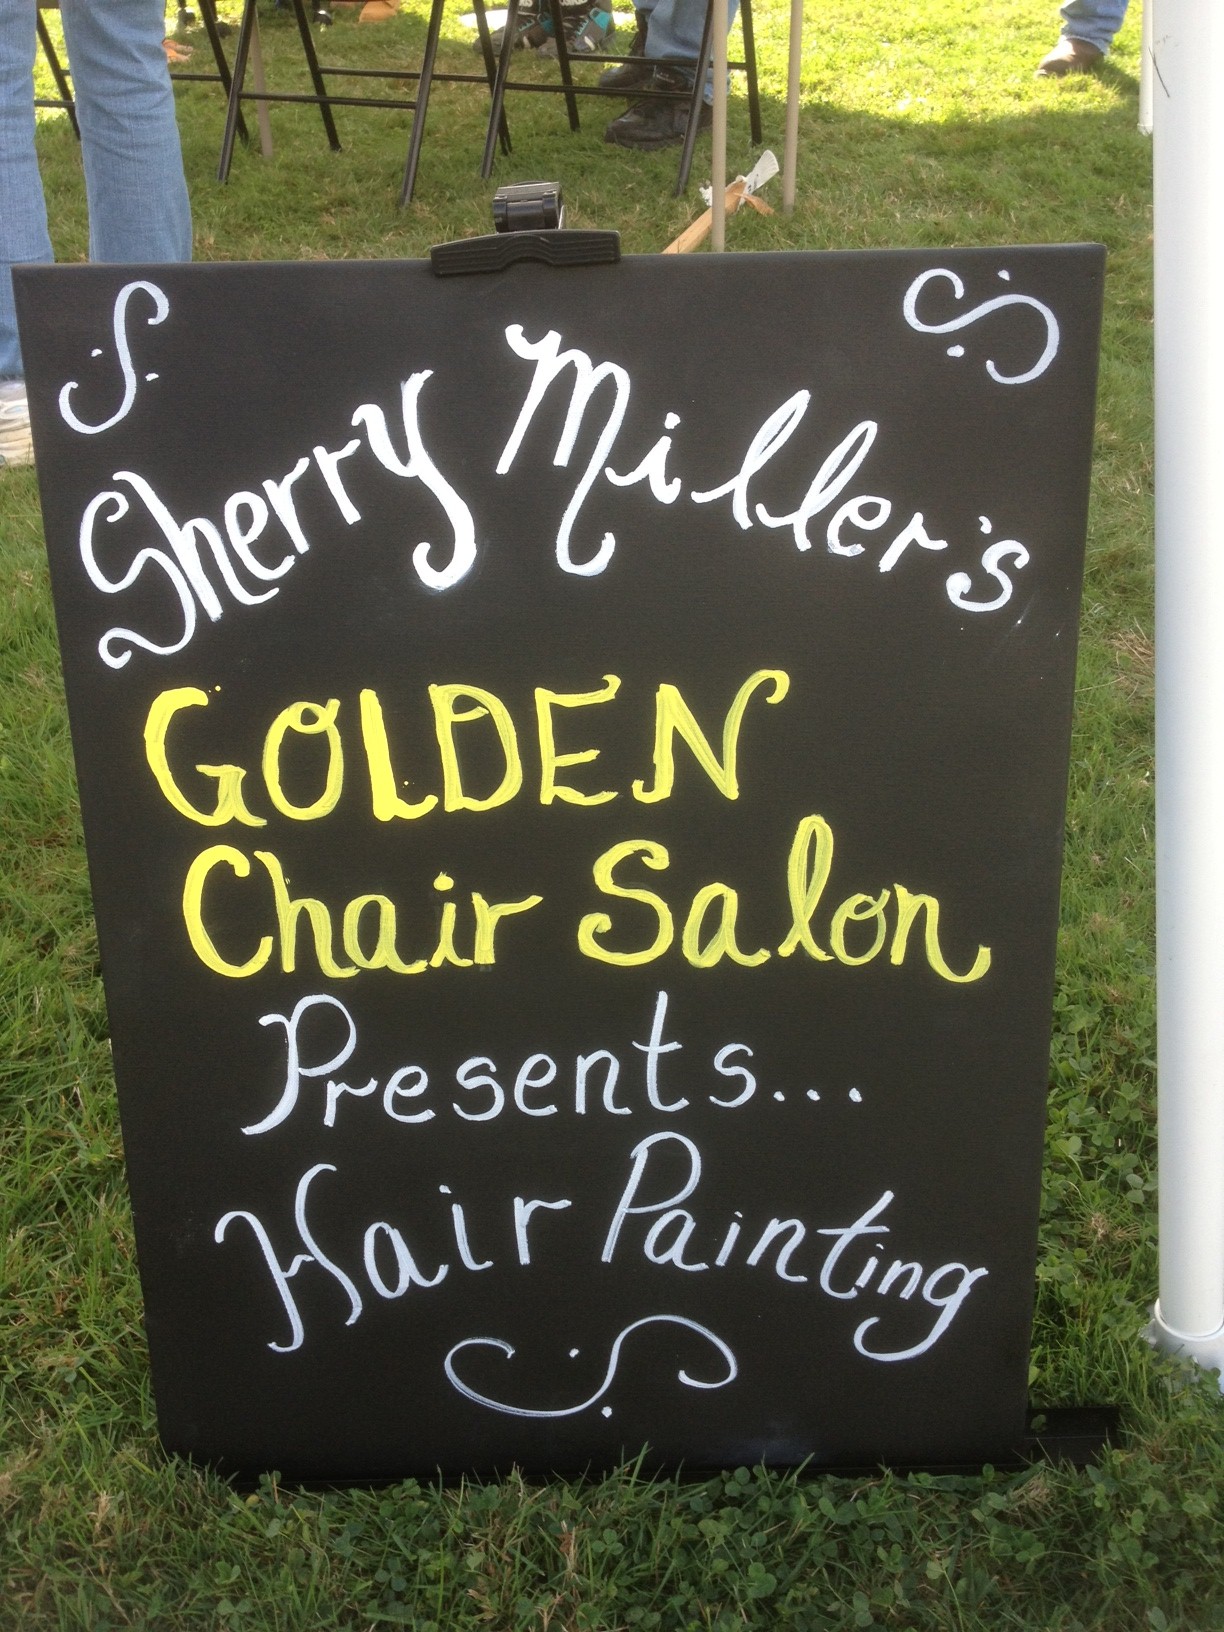 Sherry Miller's
GOLDEN
Chair Salon
Presents...
Hair Painting